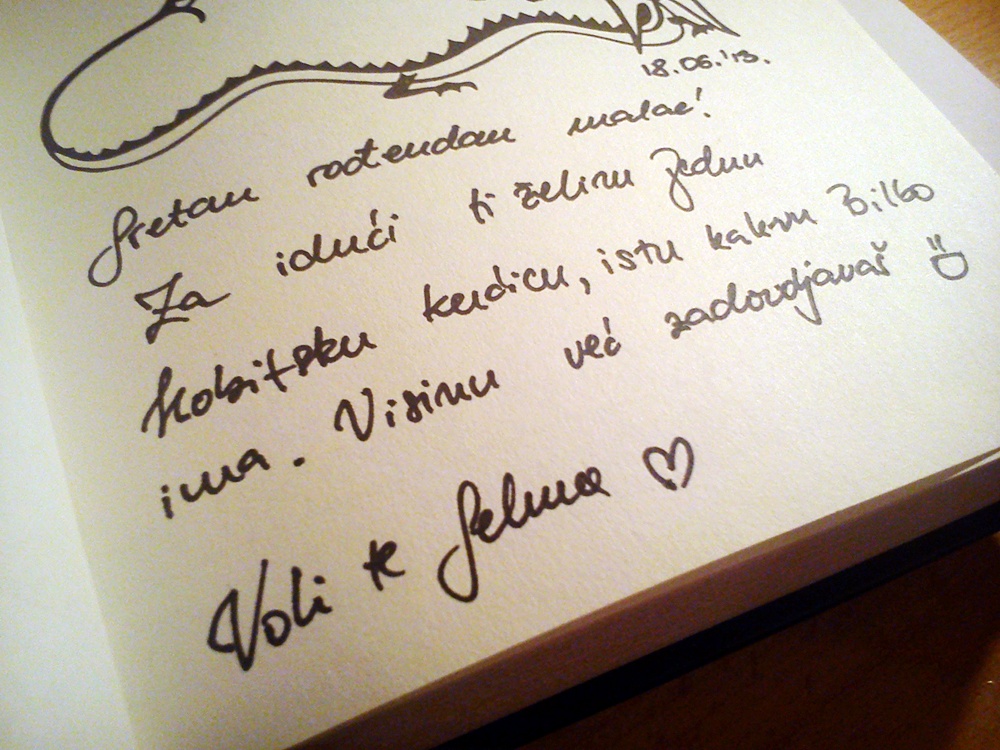 18.06.'13.
Sretan rođendan malac!
Za idući ti želim jednu
Hobitsku kućicu, istu kakvu Bilbo
ima. Visinu već zadovoljavaš
Voli te Selma ♡